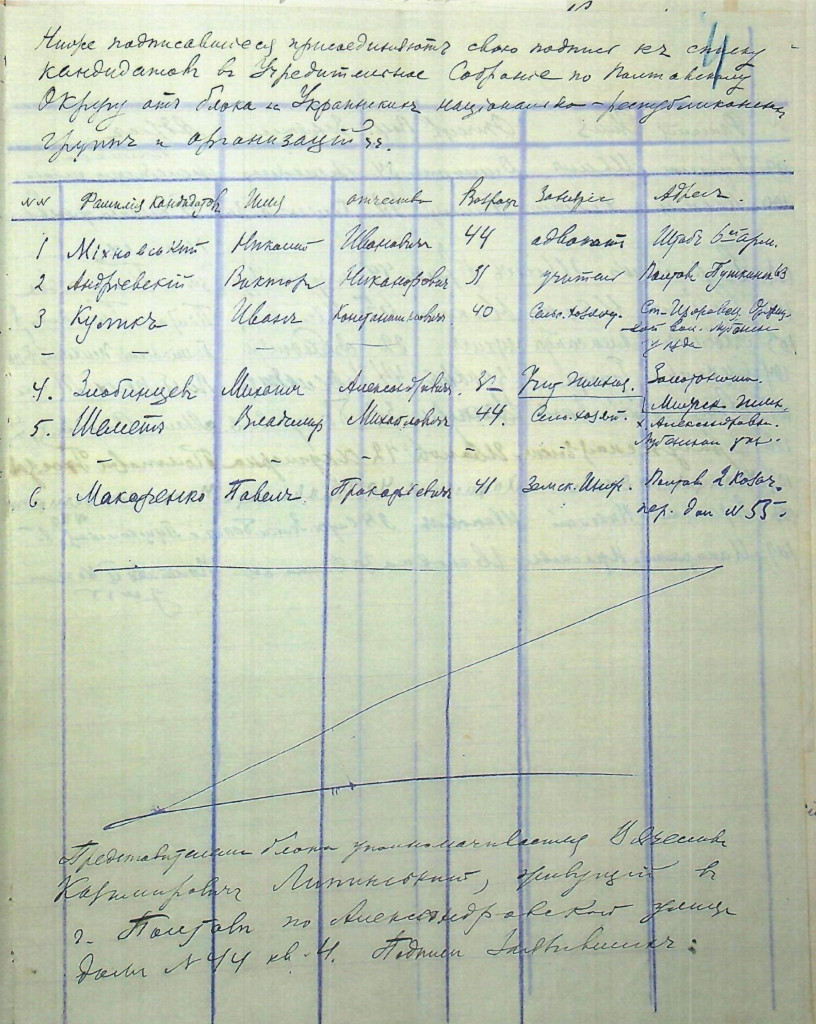 4
Ниже подписавшиеся присоединяютъ свою подпись къ списку
кандидатовъ в Учредительное Собрание по Полтавскому
Округу отъ блока Украинскихъ національно-республиканскихъ
группъ и организаций.
NN Фамилія Кандидатовъ Имя отчество Возрастъ Занятіе Адресъ.
1 Міхновський Николай Ивановичъ 44 адвокатъ Штабъ 6ой арм.
2 Андріевскій Викторъ Никаноровичъ 31 учитель Полтава Пушкинск 63
3 Куликъ Иванъ Константиновичъ 40 Сельс. хозяинъ
вол. Лубенск
уезда
4. Злобинцев Михаилъ Александровичъ 31 Учит. Золотоноша.
5. Шеметъ Владимир Михайловичъ 44. Сель. хозяй. х. Александровка
Лубенскаго уез.
6. Макаренко Павелъ Прокофіевичъ 41 Земск. Полтава 2 Козач.
пер. дом N 55.
Представителемъ блока уполномачивается Вячеслав
Казимировичъ Липинський, живущий в
г. Полтаве по Александровской улице
домъ N 44 кв. 4. Подписи заявившихъ: